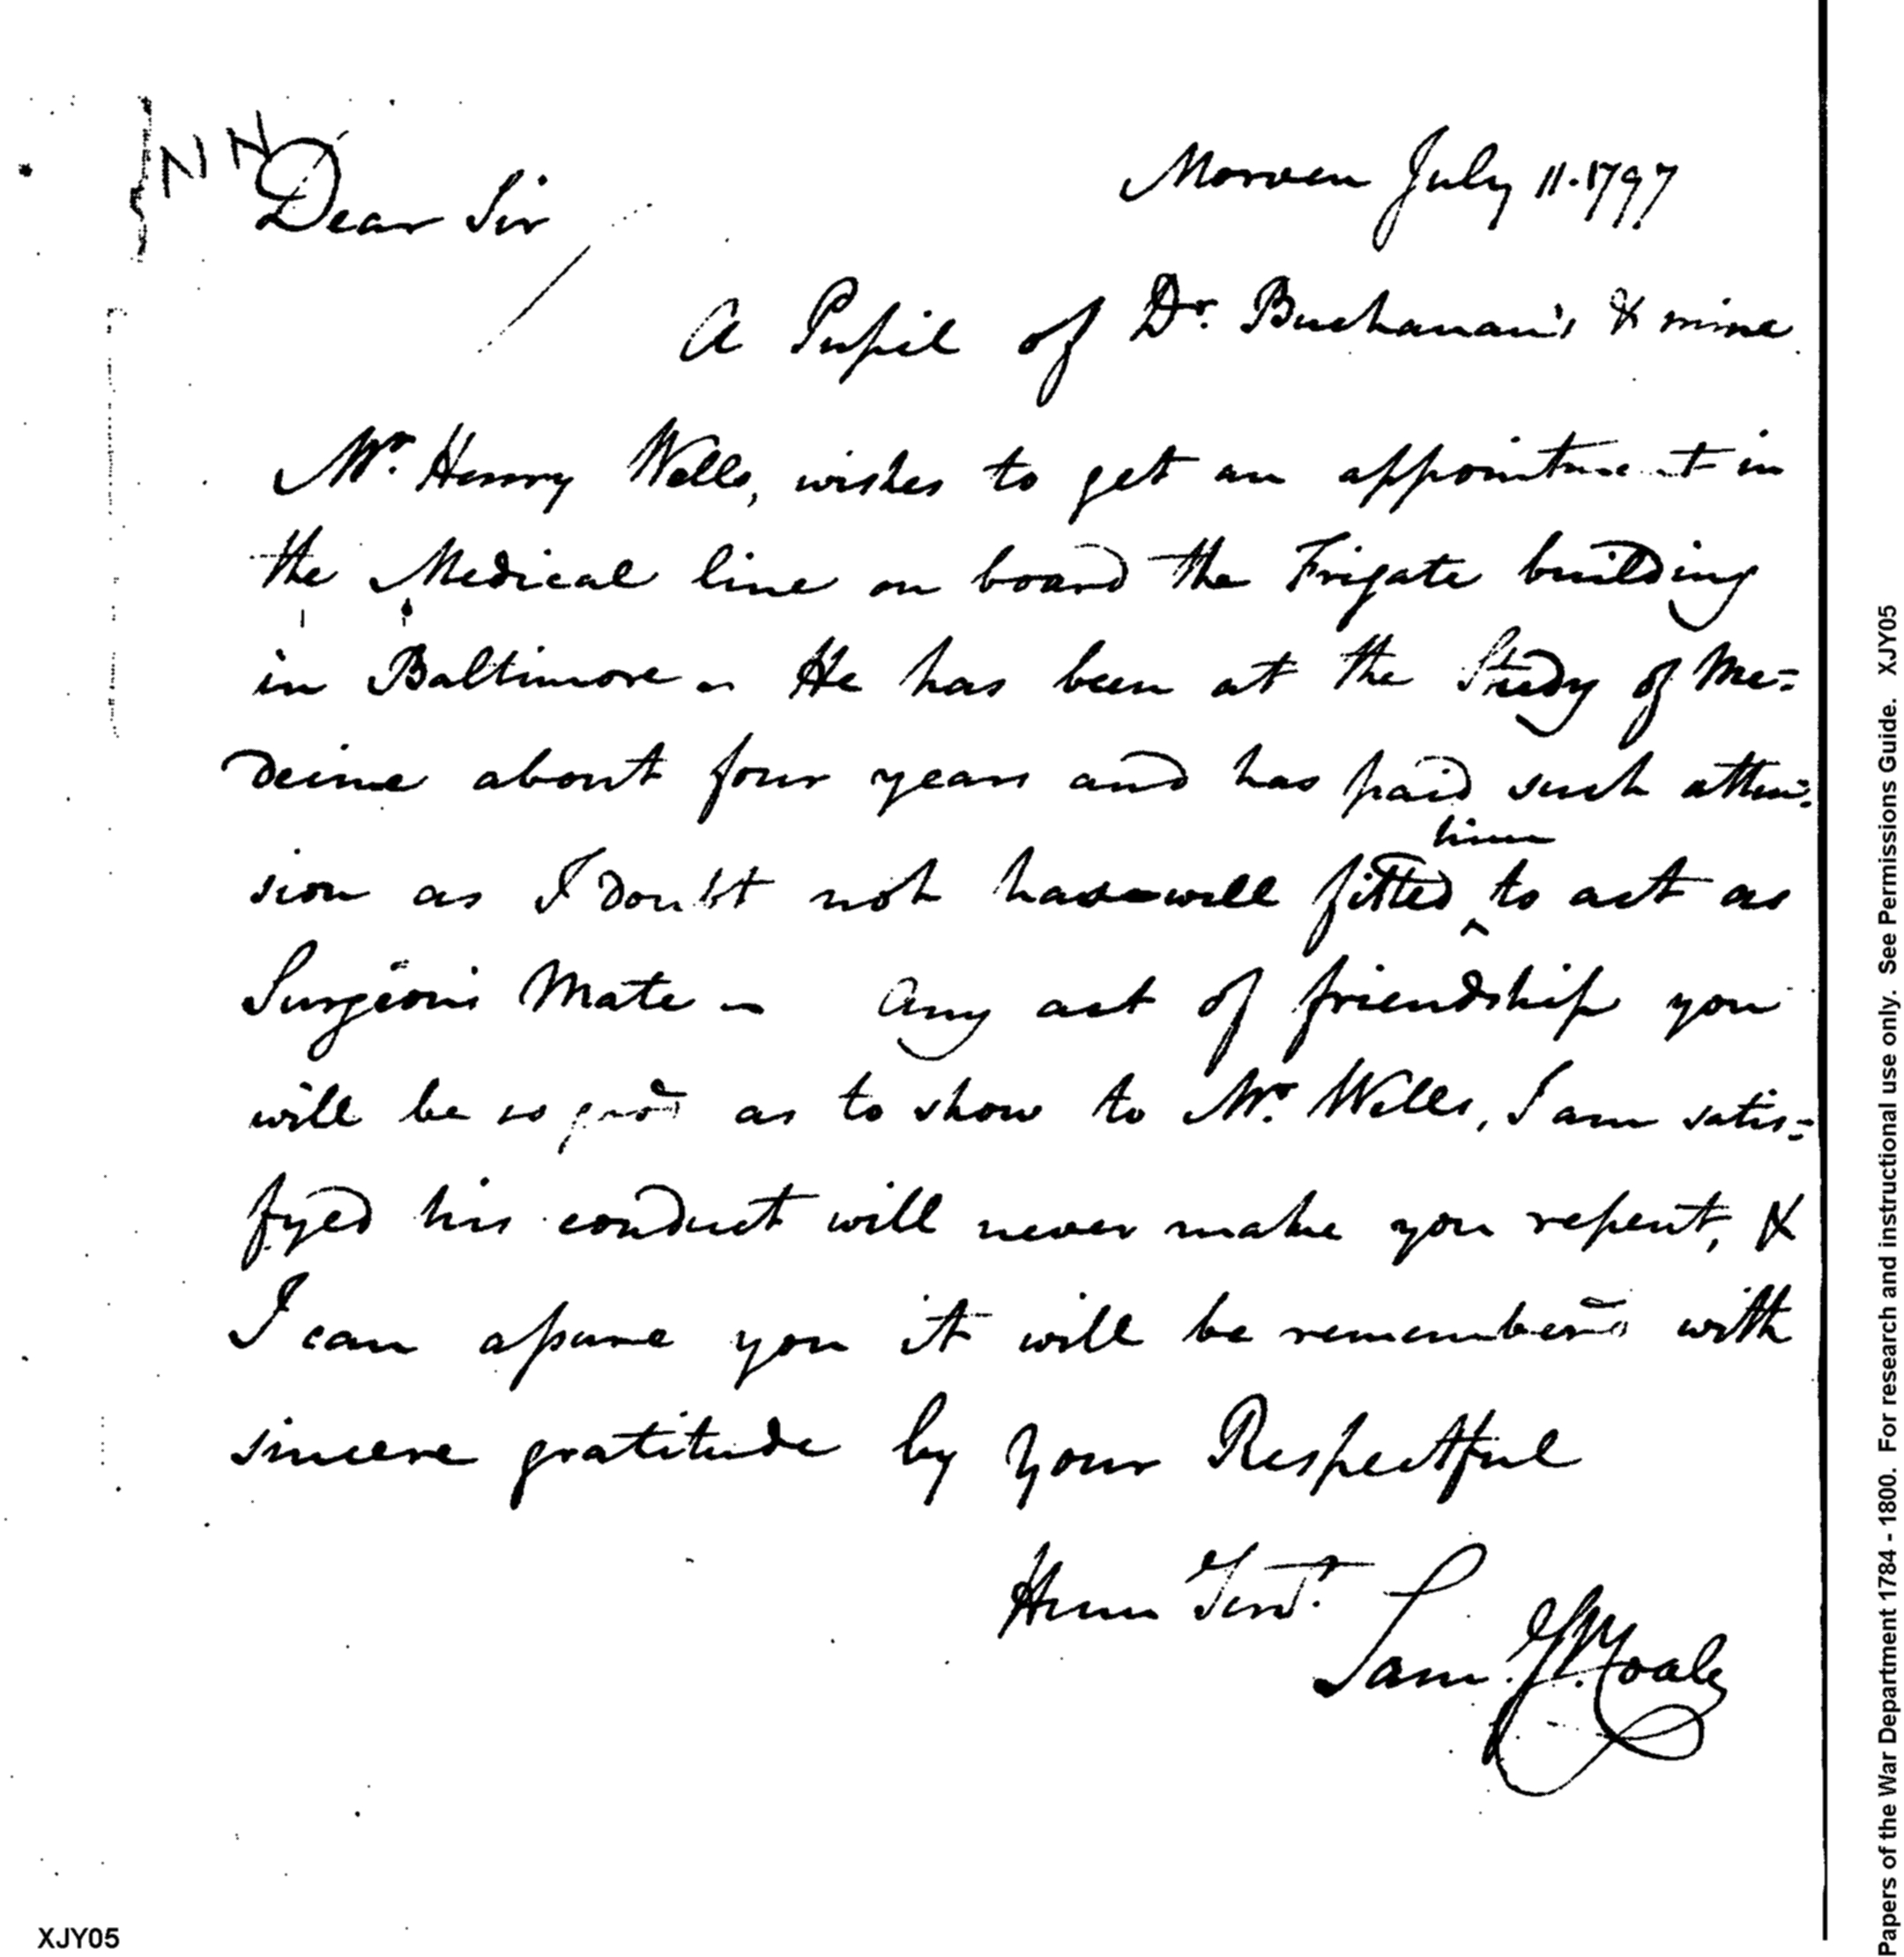 Morven July 11. 1797
Dear Sir
A Pupil of Dr. Buchanan's & mine
Mr. Henry Wells, wishes to get an appointment in
the Medical line on board the Frigate building
in Baltimore - He has been at the Study of Me=
decine about four years and has paid such atten=
him
sion as I doubt not has well fitted ^ to act as
Surgeon's Mate - Any act of friendship you
will be so good as to show to Mr. Wells, I am satis=
fyed his conduct will never make you repent, &
I can assure you it will be remembered with
sincere gratitude by your Respectful
Hum Servt.
Sam. Coale
XJY05
Papers of the War Department 1784 - 1800. For research and instructional use only. See Permissions Guide. XJY05